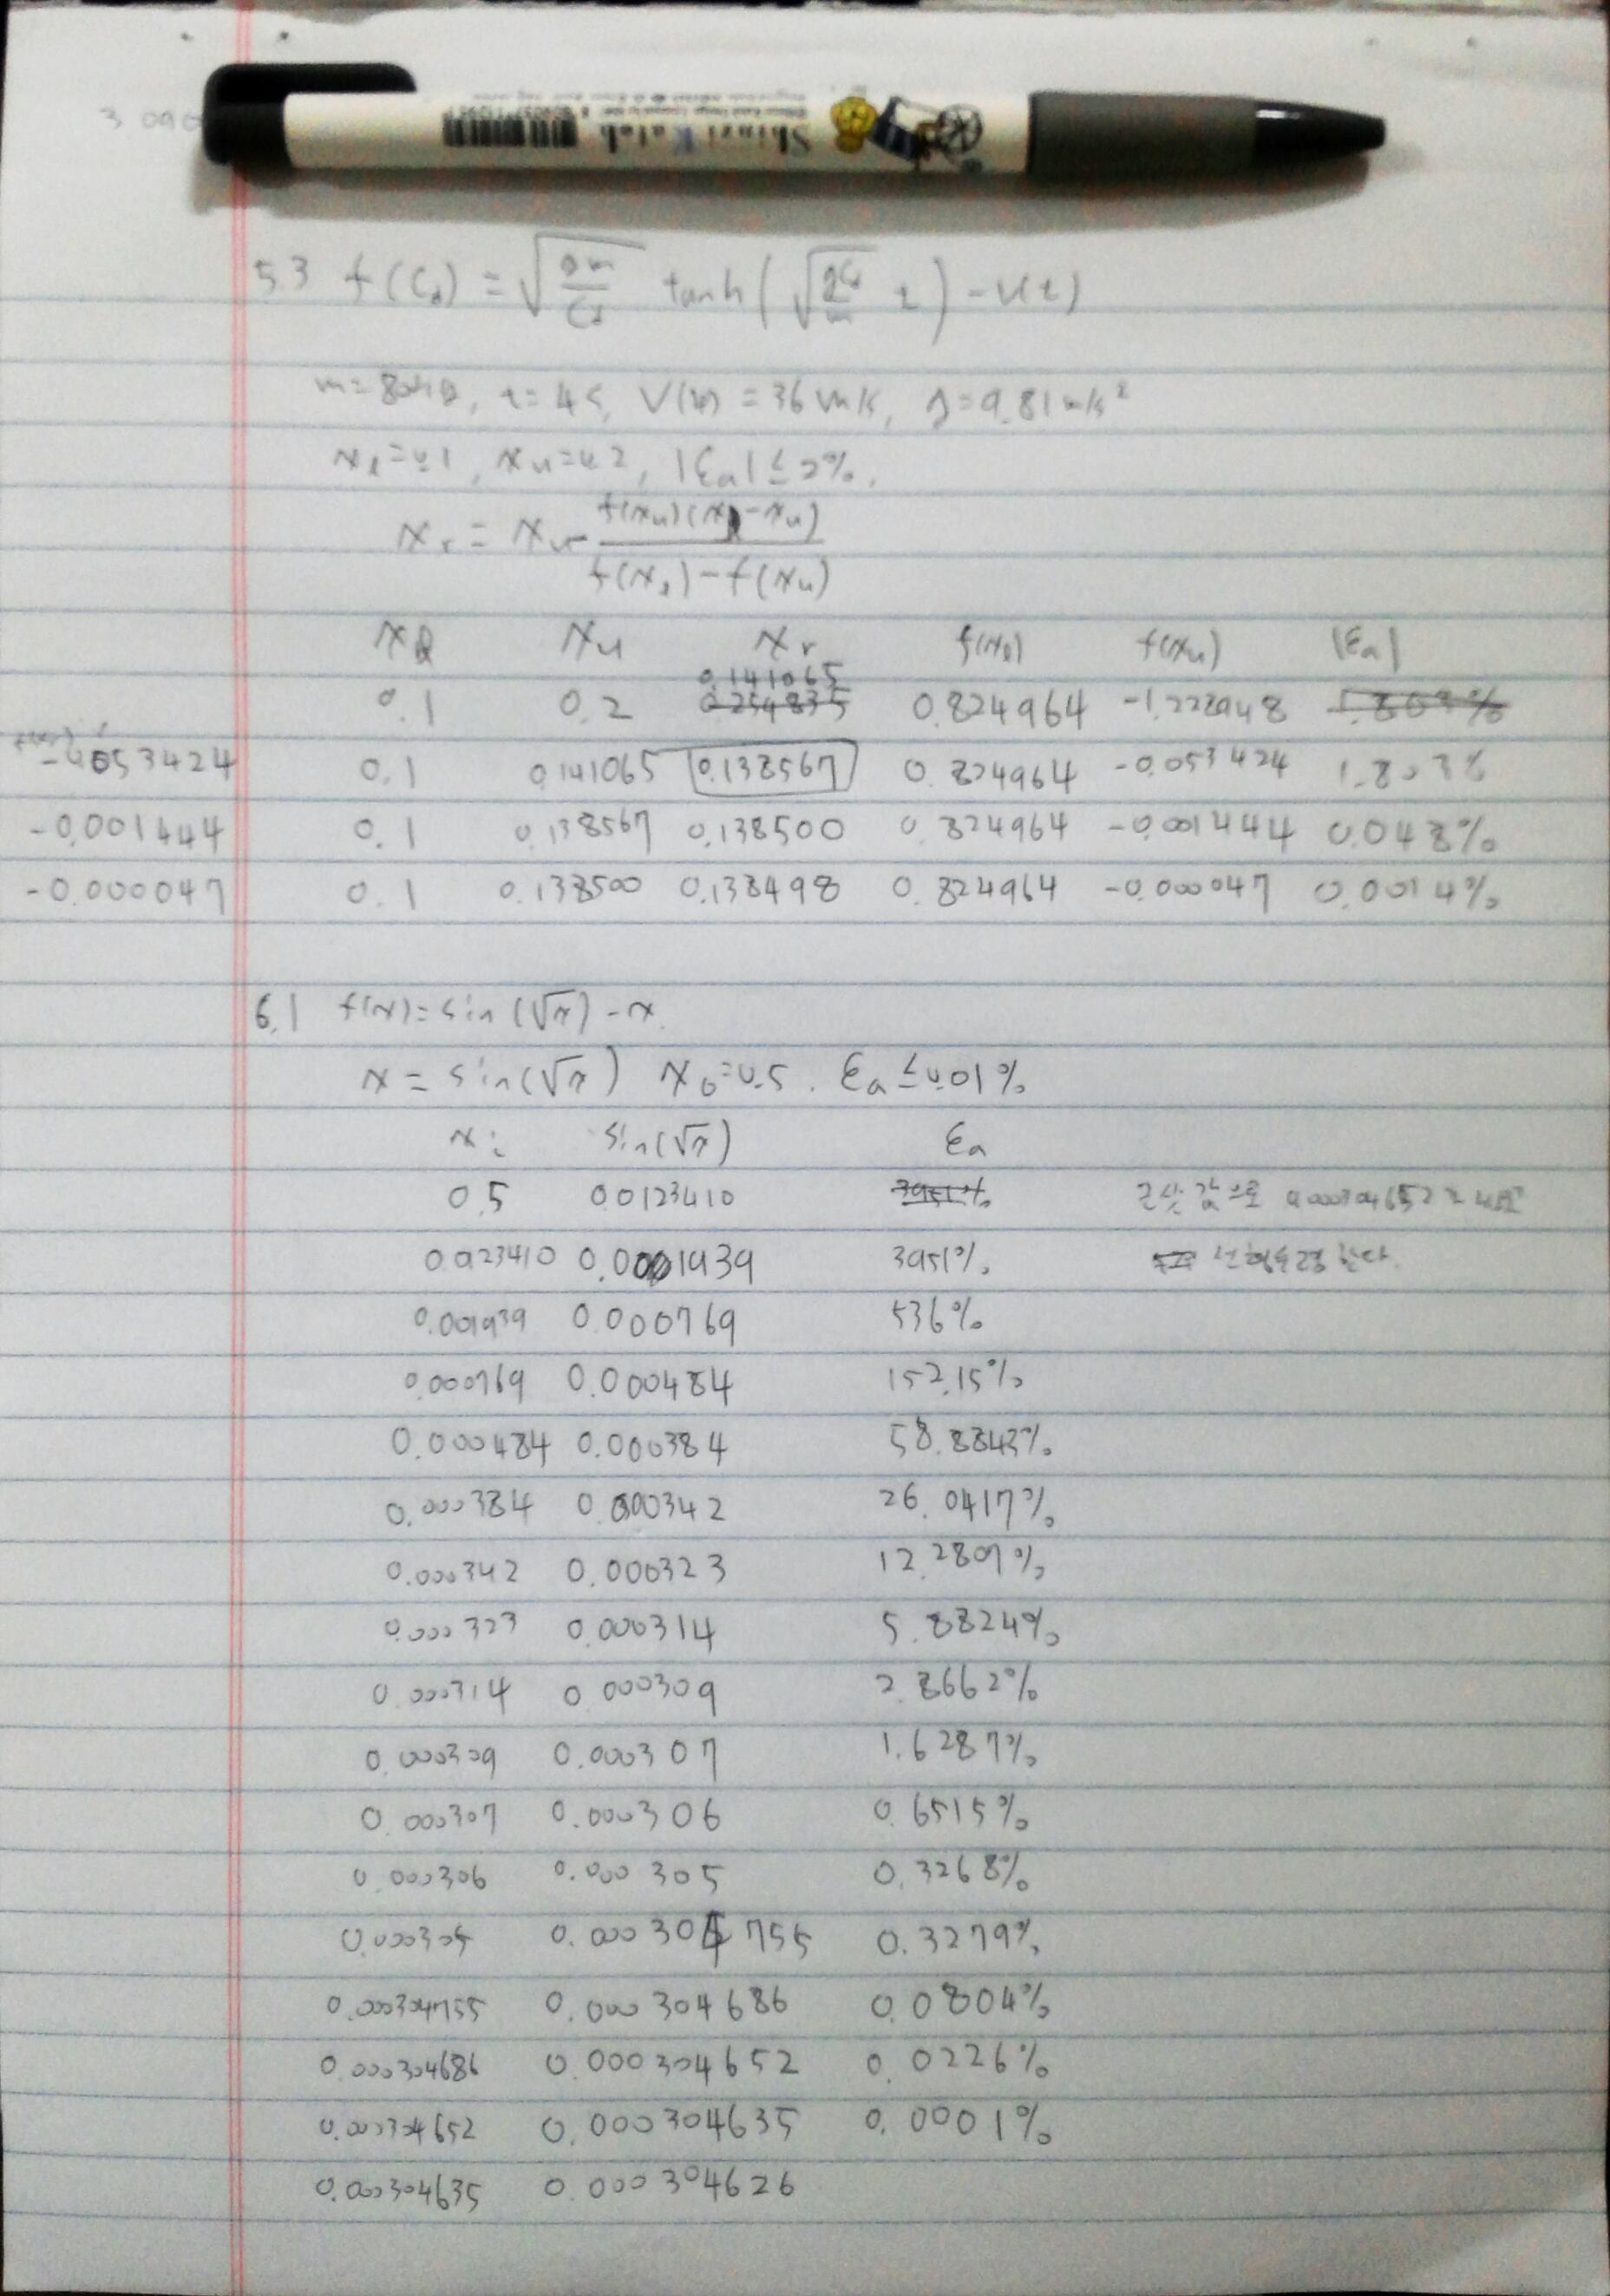 Shinzi Katoh
5.3 f(Cd) = √(gm/Cd) tanh(√(gCd/m) t) - v(t)
m=80kg, t=4s, V(t)=36m/s, g=9.81m/s²
xl=0.1, xu=0.2, |εa| ≤ 2%.
xr = xu - f(xu)(xl-xu) / f(xl)-f(xu)
xl xu xr f(xl) f(xu) |εa|
0.141065
0.1 0.2 0.254835 0.824964 -1.228948
-0.053424 0.1 0.141065 0.138567 0.824964 -0.053424 1.803%
-0.001444 0.1 0.138567 0.138500 0.824964 -0.001444 0.048%
-0.000047 0.1 0.138500 0.138498 0.824964 -0.000047 0.0014%
6.1 f(x)=sin(√x)-x
x = sin(√x) x0=0.5. εa ≤0.01%
xi sin(√x) εa
0.5 0.0123410 3951% 근삿값으로 0.000304652
0.0123410 0.001939 3951% 한다.
0.001939 0.000769 536%
0.000769 0.000484 152.15%
0.000484 0.000384 58.8843%
0.000384 0.000342 26.0417%
0.000342 0.000323 12.2807%
0.000323 0.000314 5.8824%
0.000314 0.000309 2.8662%
0.000309 0.000307 1.6287%
0.000307 0.000306 0.6515%
0.000306 0.000305 0.3268%
0.000305 0.000304755 0.3279%
0.000304755 0.000304686 0.0804%
0.000304686 0.000304652 0.0226%
0.000304652 0.000304635 0.0001%
0.000304635 0.000304626